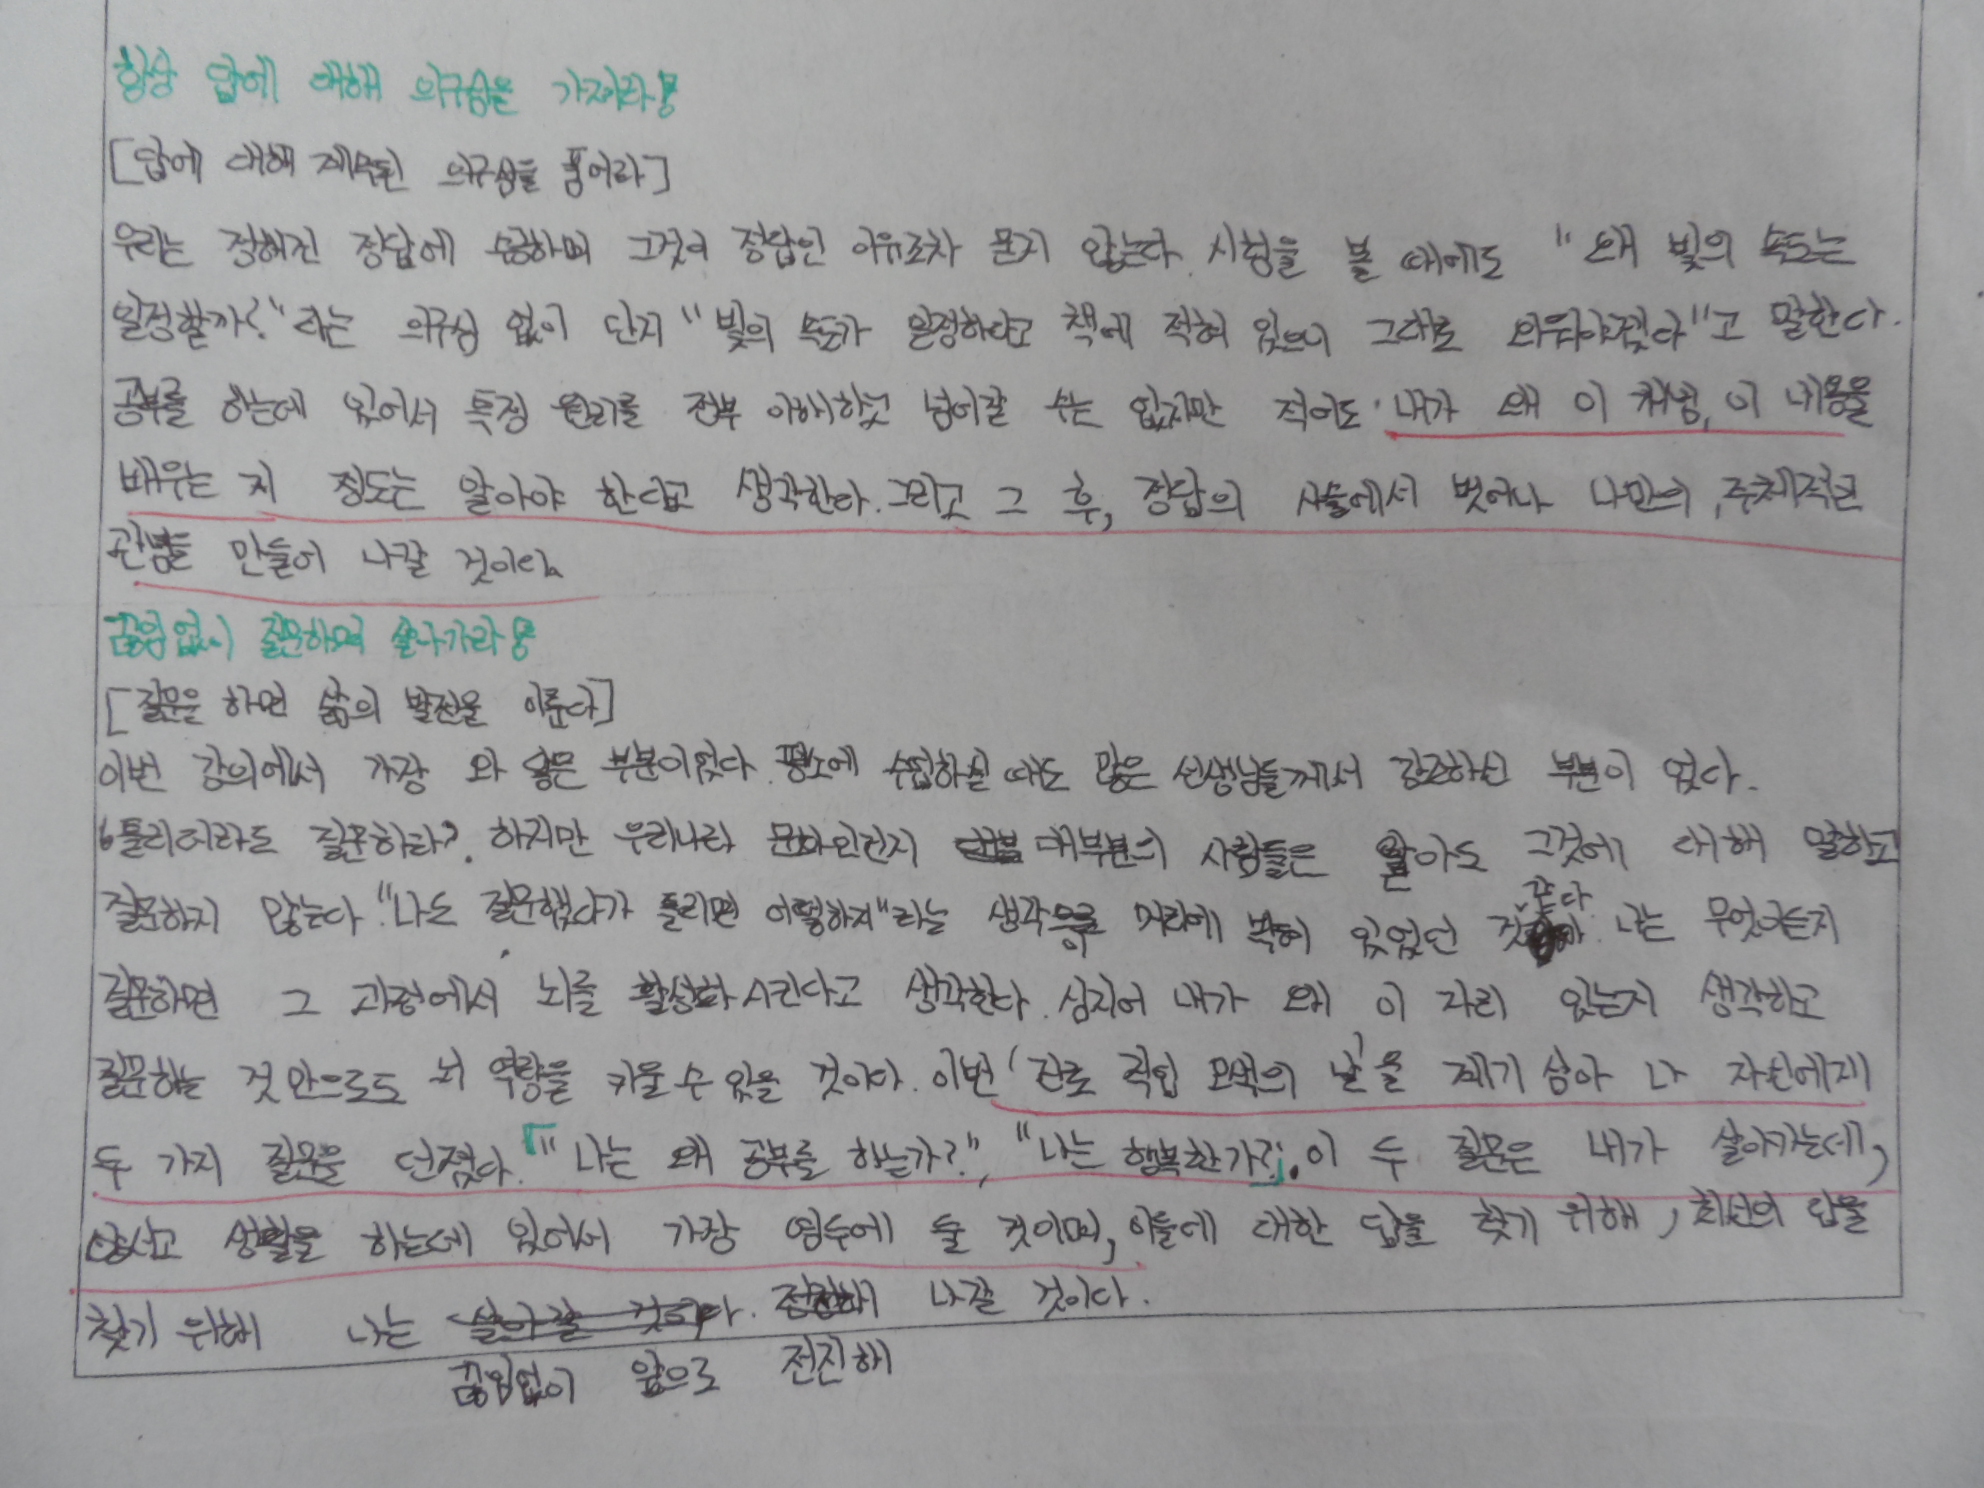 항상 답에 대해 의구심을 가져라
[답에 대해 계속된 의구심을 품어라]
우리는 정해진 정답에 수긍하며 그것이 정답인 이유조차 묻지 않는다. 시험을 볼 때에도 "왜 빛의 속도는
일정할까?"라는 의구심 없이 단지 "빛의 속도가 일정하다고 책에 적혀 있으니 그대로 외워야겠다"고 말한다.
공부를 하는데 있어서 특정 원리를 전부 이해하고 넘어갈 수는 없지만 적어도 내가 왜 이 개념, 이 내용을
배우는 지 정도는 알아야 한다고 생각한다. 그리고 그 후, 정답의 사슬에서 벗어나 나만의, 주체적인
관념을 만들어 나갈 것이다.
끊임없이 질문하며 살아가라
[질문을 하면 삶의 발전을 이룬다]
이번 강의에서 가장 와 닿은 부분이었다. 평소에 수업하실 때도 많은 선생님들께서 강조하신 부분이 었다.
'틀리더라도 질문하라'. 하지만 우리나라 문화인건지 대부분의 사람들은 알아도 그것에 대해 말하고
질문하지 않는다. "나도 질문했다가 틀리면 어떻하지"라는 생각이 머리에 박혀 있었던 것 같다. 나는 무엇이든지
질문하면 그 과정에서 뇌를 활성화 시킨다고 생각한다. 심지어 내가 왜 이 자리 있는지 생각하고
질문하는 것 만으로도 뇌 역량을 키울 수 있을 것이다. 이번 '진로 직업 모색의 날'을 계기 삼아 나 자신에게
두 가지 질문을 던졌다. 「"나는 왜 공부를 하는가?", "나는 행복한가?」. 이 두 질문은 내가 살아가는데,
앞서고 생활을 하는데 있어서 가장 염두에 둘 것이며, 이들에 대한 답을 찾기 위해, 최선의 답을
찾기 위해 나는 나갈 것이다.
끊임없이 앞으로 전진해